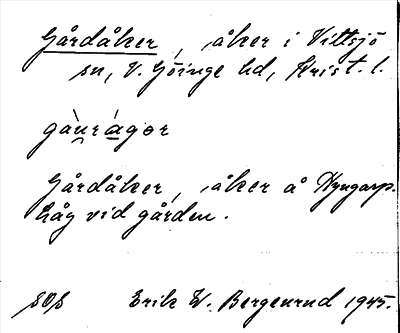 Gårdåker, åker i Vittsjö
sn, V. Göinge hd, Krist. l.
gàu̯rågər
Gårdåker, åker å Ryngarp.
Låg vid gården.
Erik W. Bergenrud 1945.